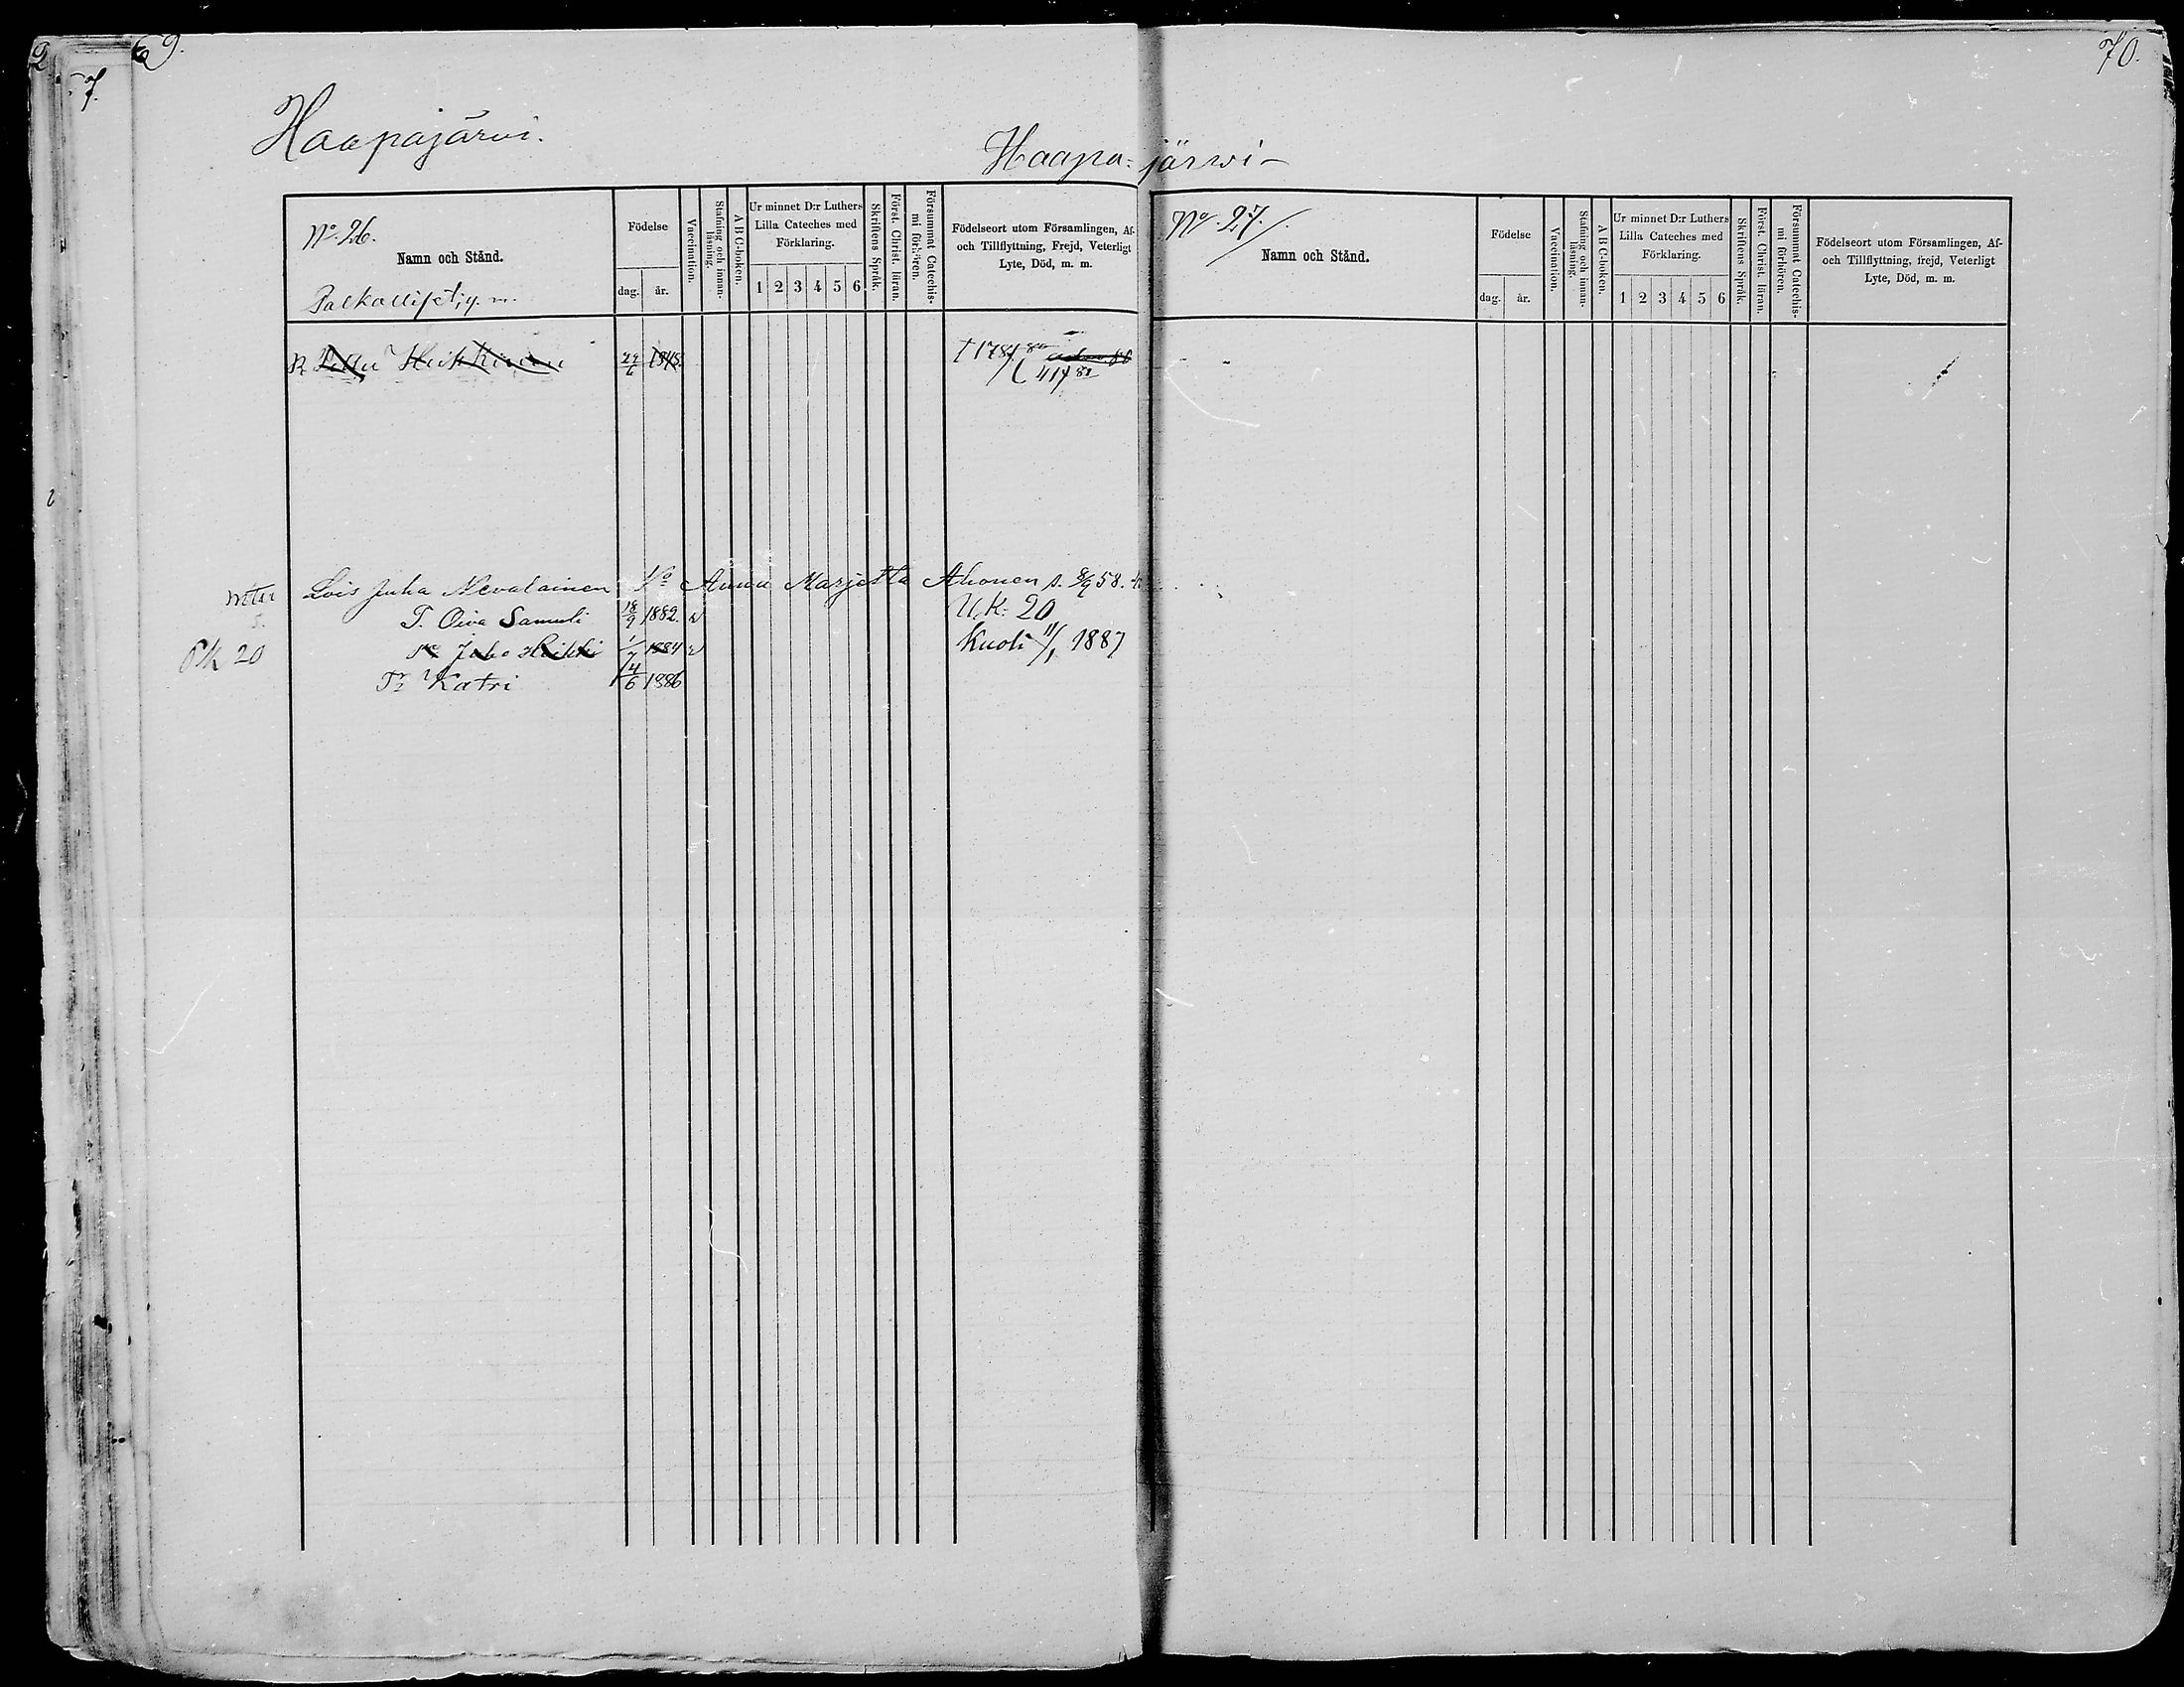 69.
70.
7.
Haapajärvi.
Haapa-järwi-
No. 26.
Namn och Stånd.
Palkolliset, y. m.
Födelse
dag. år.
Vaccination.
Stafning och innan-läsning.
A B C-boken.
Ur minnet D:r Luthers
Lilla Cateches med
Förklaring.
1 2 3 4 5 6
Skriftens Språk.
Först. Christ. läran.
Försummat Catechis-mi förhören.
Födelseort utom Församlingen, Af-
och Tillflyttning, Frejd, Veterligt
Lyte, Död, m. m.
R. Heikkinen 1848.
417
Lois Juha Nevalainen Vo Anna Marjetta Ahonen s. 8/9 58.
T. Oiva Samuli 18/9 1882. v U.K: 20
PK 20 Juho Heikki 1/7 1884 v Kuoli 11/1 1887
Tr Katri 14/6 1886
No. 27.
Namn och Stånd.
Födelse
dag. år.
Vaccination.
Stafning och innan-läsning.
A B C-boken.
Ur minnet D:r Luthers
Lilla Cateches med
Förklaring.
1 2 3 4 5 6
Skriftens Språk.
Först. Christ. läran.
Försummat Catechis-mi förhören.
Födelseort utom Församlingen, Af-
och Tillflyttning, frejd, Veterligt
Lyte, Död, m. m.